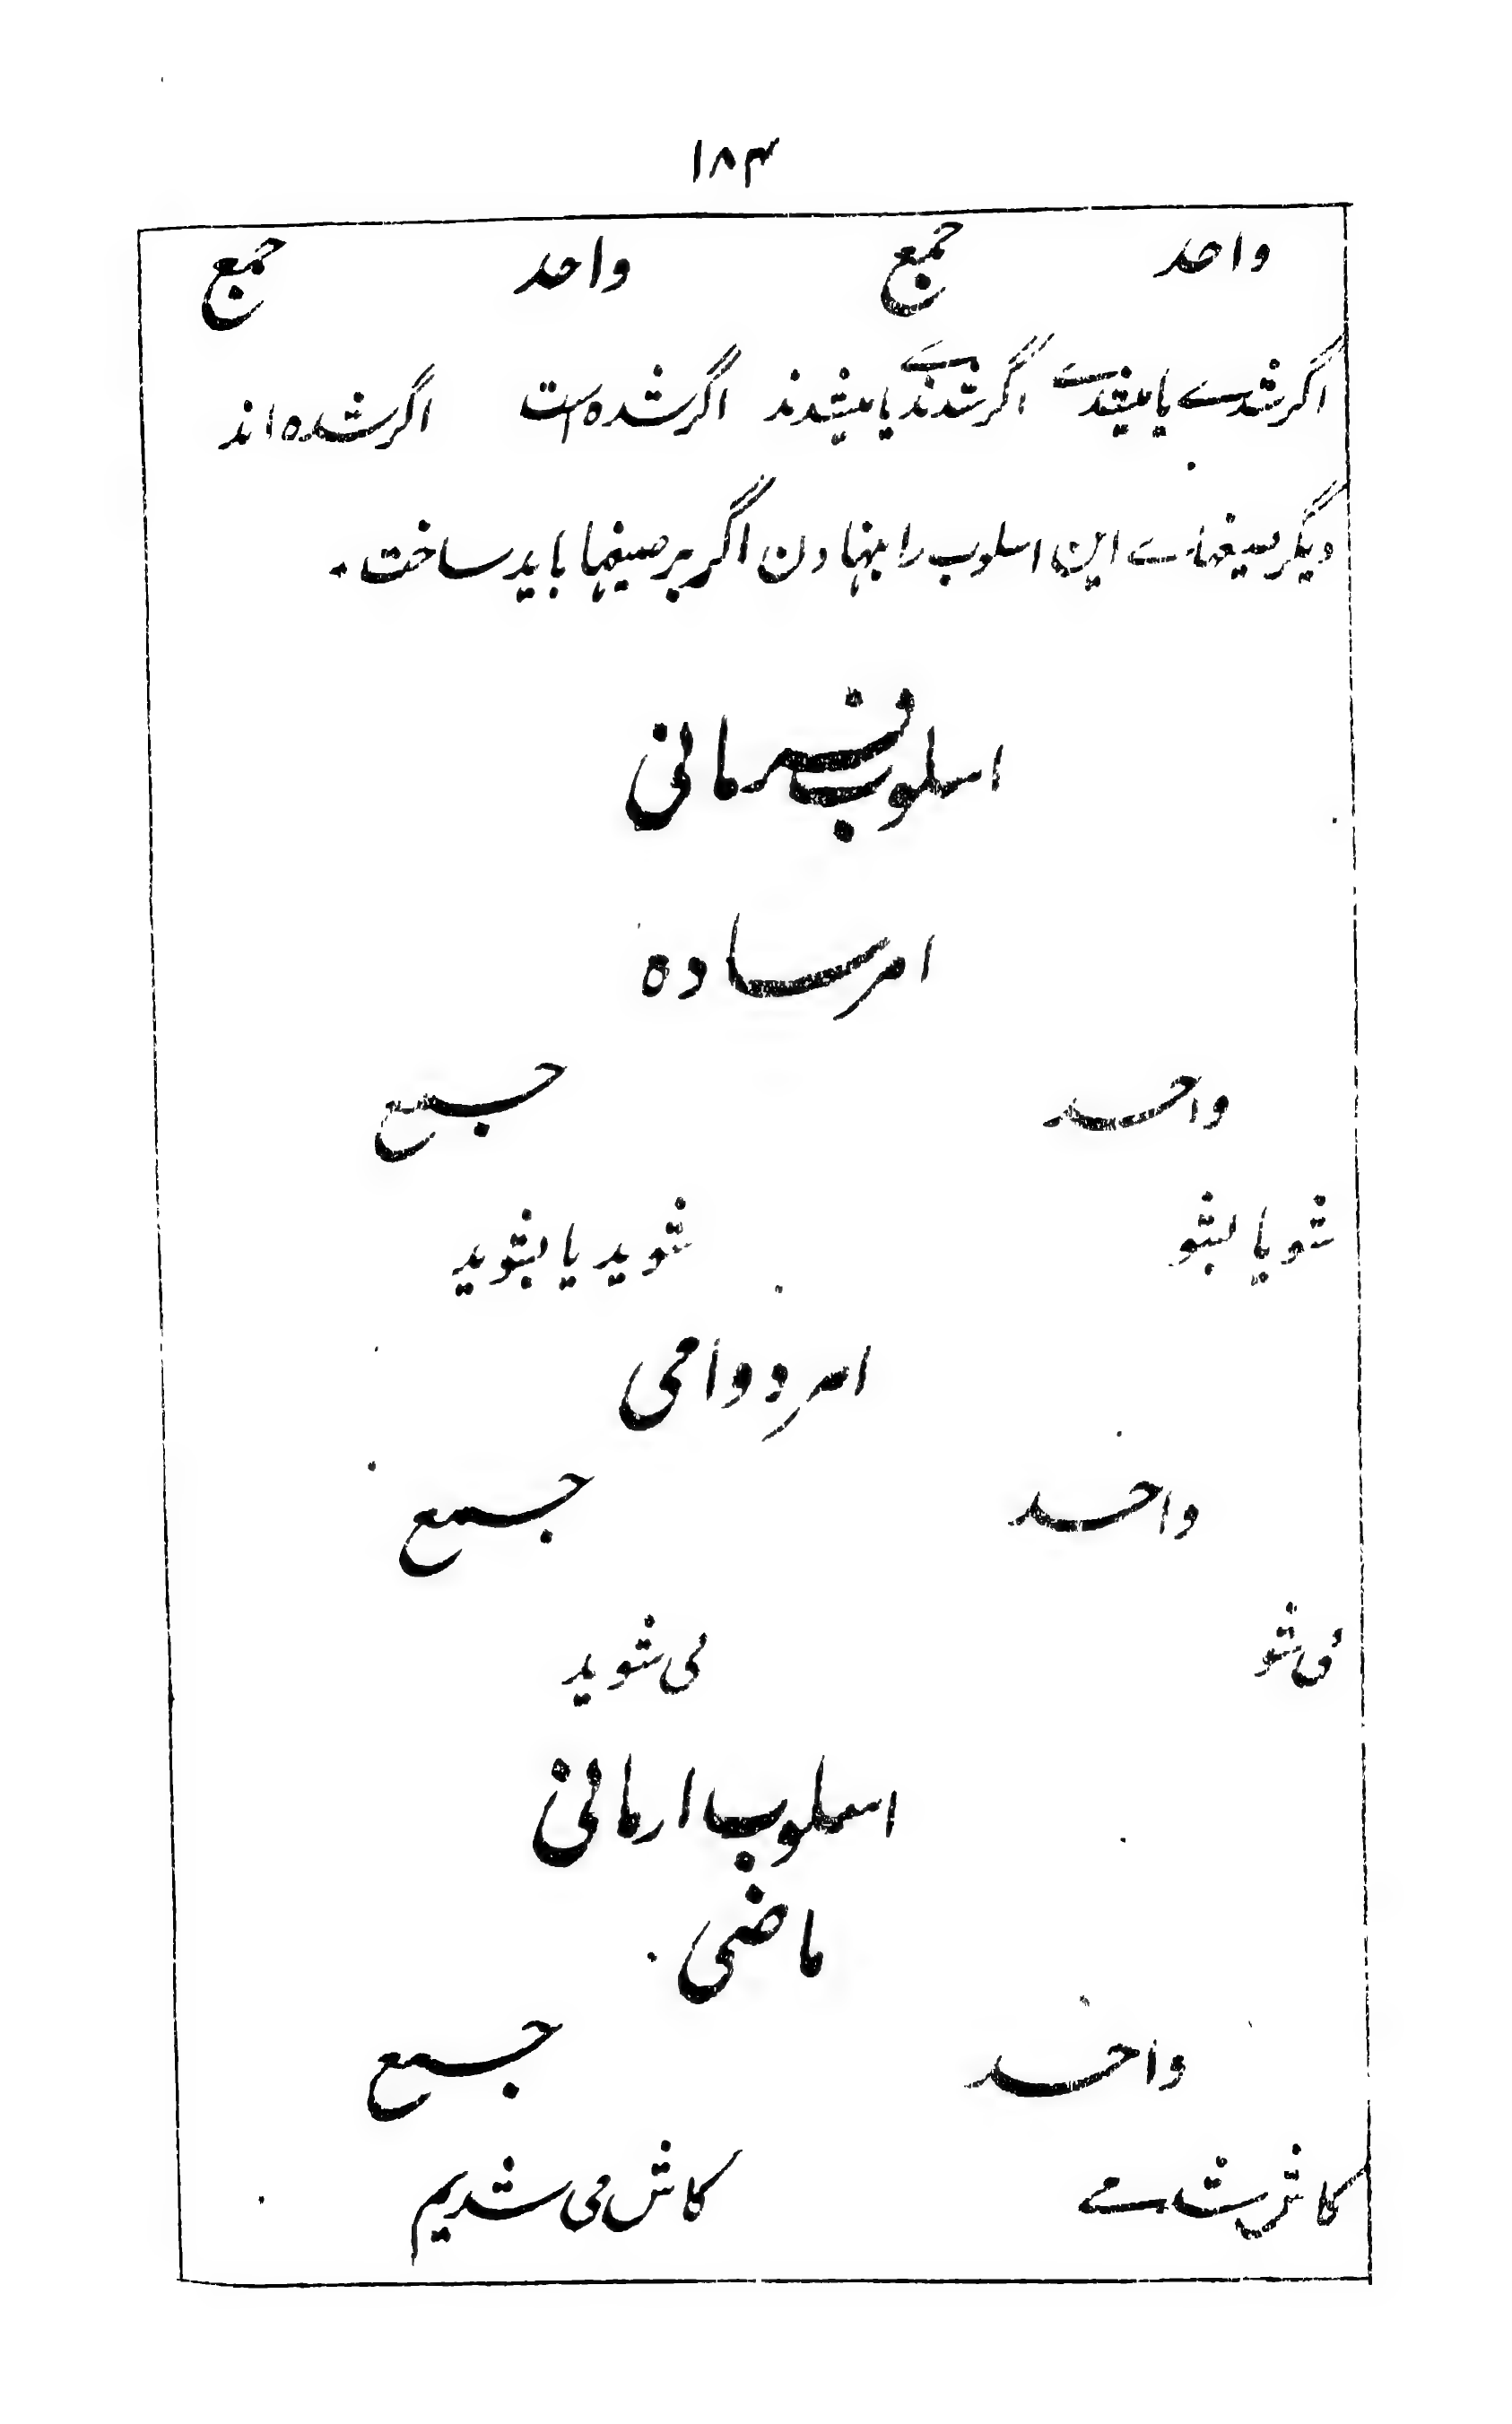 ۱۸۴
واحد جمع واحد جمع
اگر شدے یا میشدے اگر شدندے یا میشدند اگر شده است اگر شده اند
دیگر صیغهاے این اسلوب را بنهادن اگر بر صیغها باید ساخت ۔
اسلوب فرمانی
امر ساده
واحد جمع
شو یا بشو شوید یا بشوید
امر دوامی
واحد جمع
می شو می شوید
اسلوب ارمانی
ماضی
واحد جمع
کاش شدمے کاش می شدیم